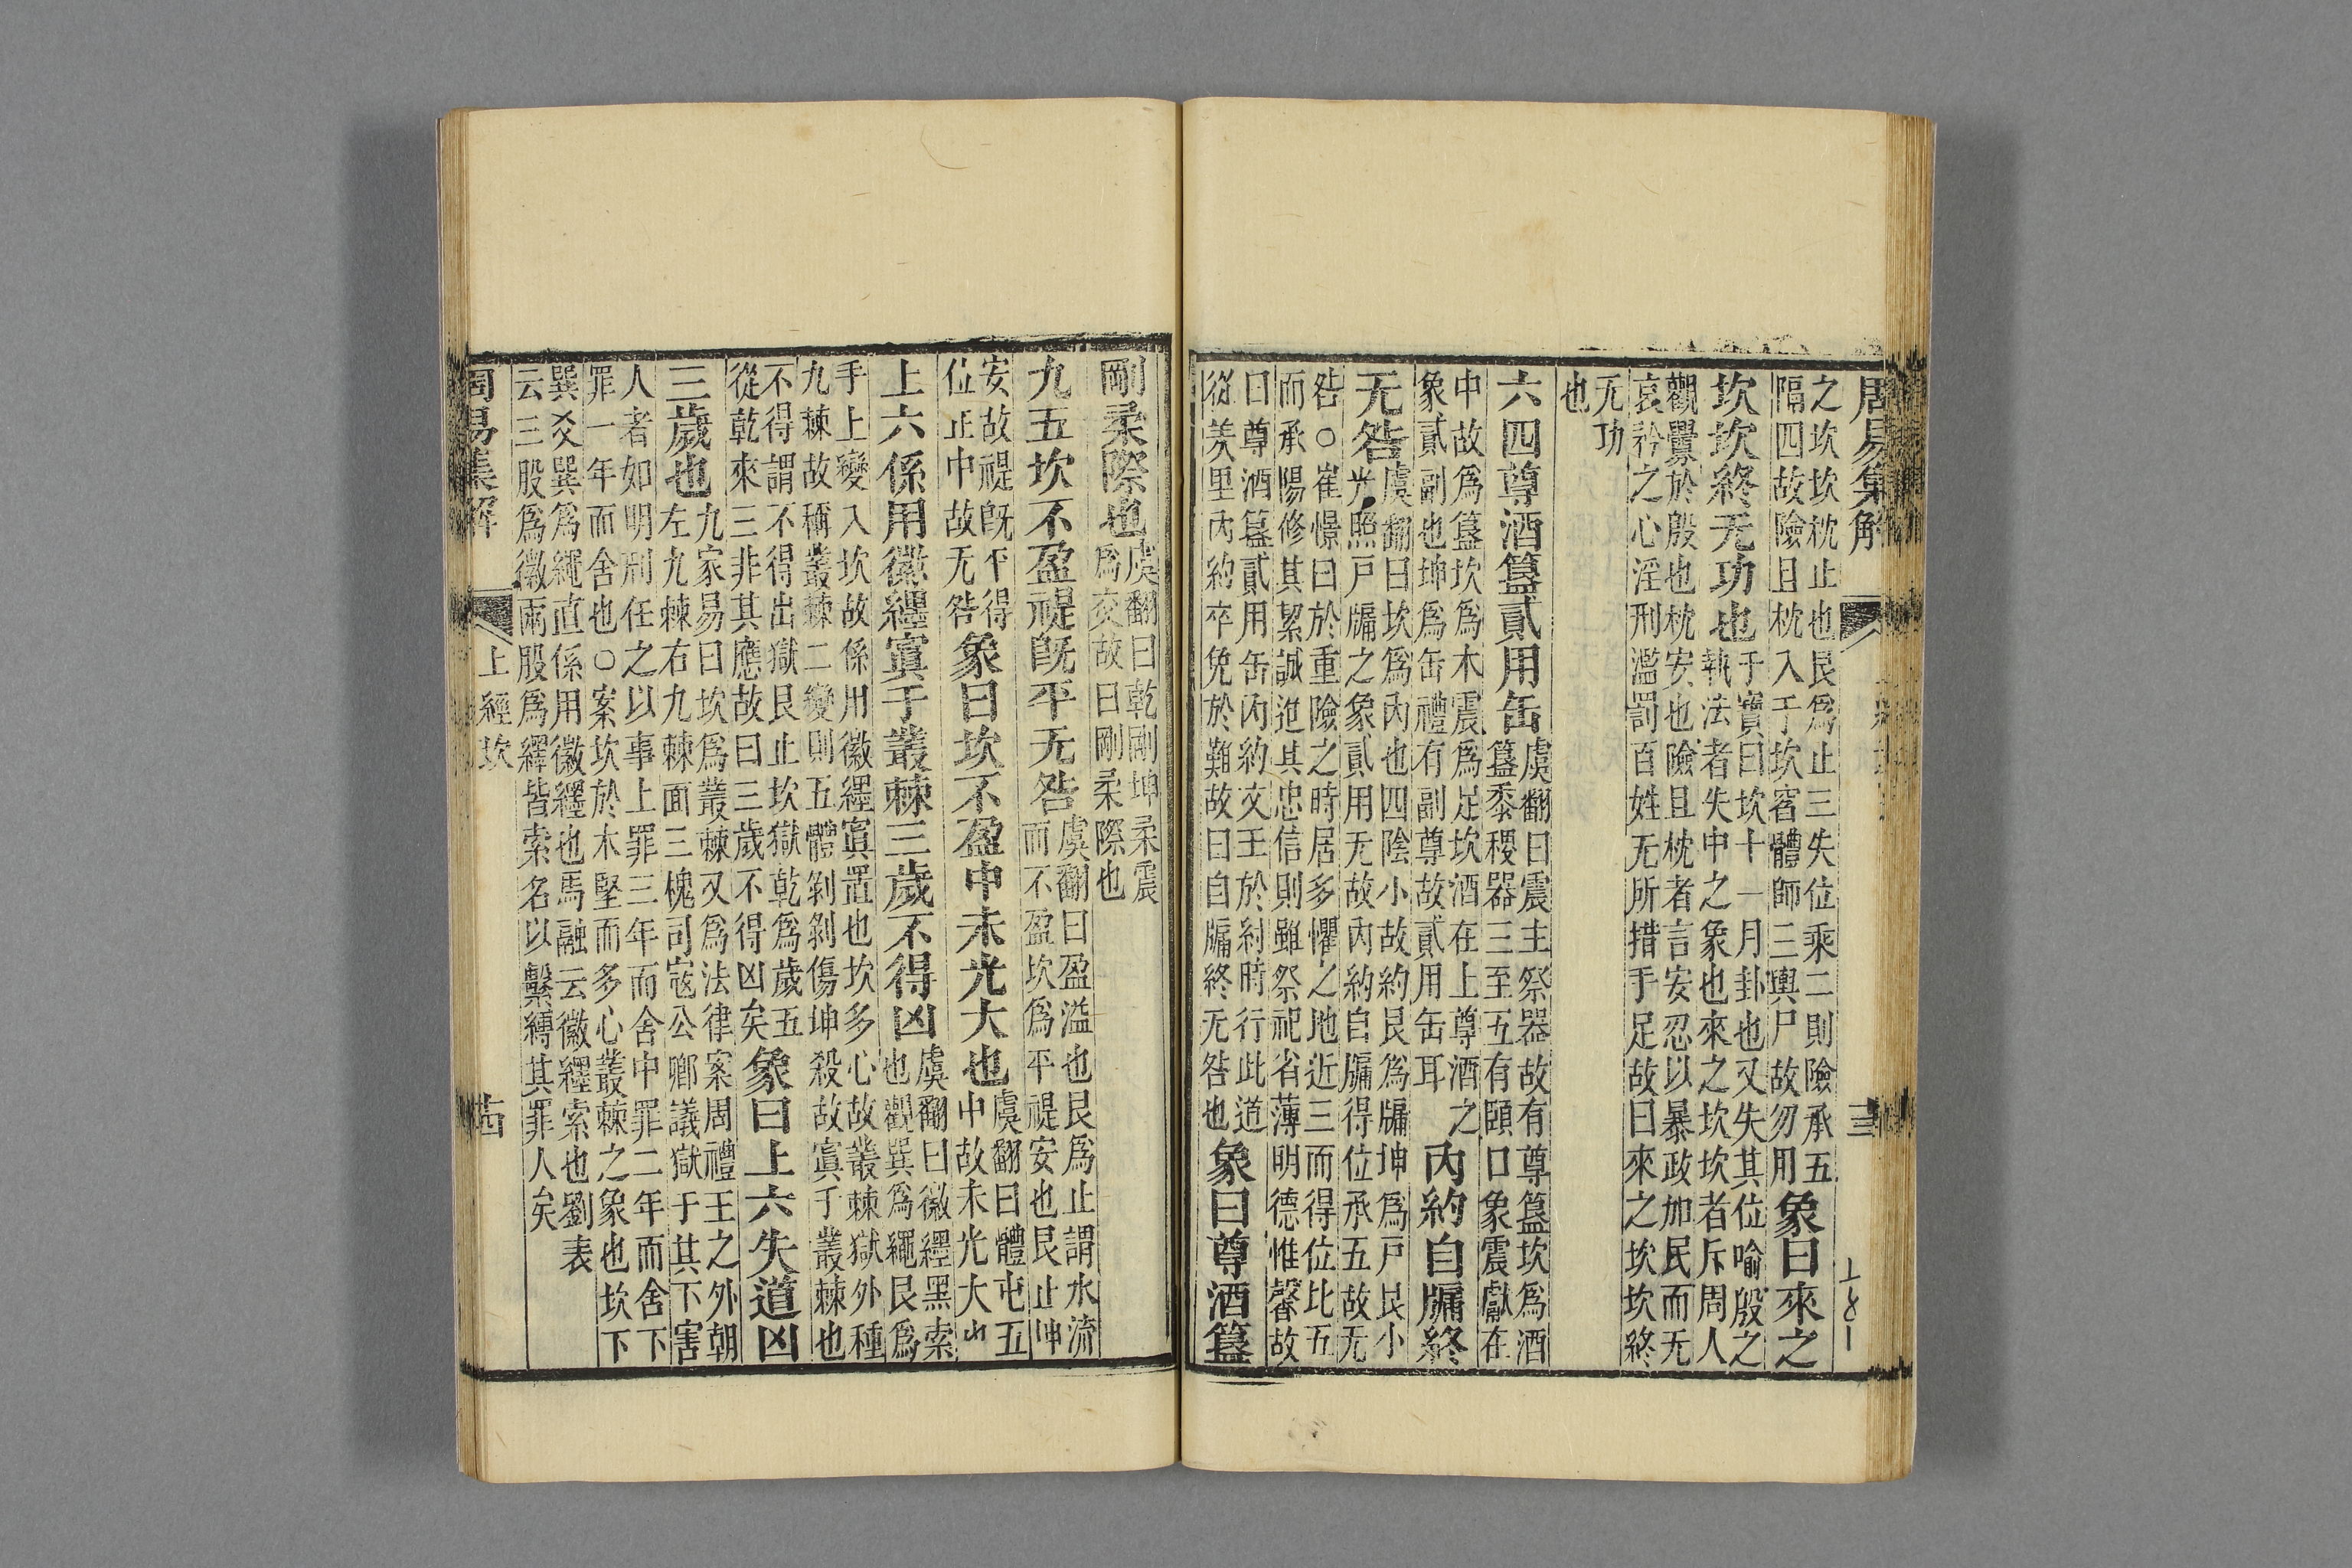 周易集解
三
之坎坎枕止也艮爲止三失位乘二則險承五
隔四故險且枕入于坎窞體師三輿尸故勿用象曰來之
坎坎終无功也干寶曰坎十一月卦也又失其位喻殷之
執法者失中之象也來之坎坎者斥周人
觀釁於殷也枕安也險且枕者言安忍以暴政加民而无
哀矜之心淫刑濫罰百姓无所措手足故曰來之坎坎終
无功
也
六四尊酒簋貳用缶虞翻曰震主祭器故有尊簋坎爲酒
簋黍稷器三至五有頤口象震獻在
中故爲簋坎爲木震爲足坎酒在上尊酒之
象貳副也坤爲缶禮有副尊故貳用缶耳
內約自牖終
无咎虞翻曰坎爲內也四陰小故約艮爲牖坤爲戶艮小
光照戶牖之象貳用无故內約自牖得位承五故无
咎○崔憬曰於重險之時居多懼之地近三而得位比五
而承陽修其絜誠進其忠信則雖祭祀省薄明德惟馨故
曰尊酒簋貳用缶內約文王於紂時行此道
從羑里內約卒免於難故曰自牖終无咎也象曰尊酒簋
剛柔際也虞翻曰乾剛坤柔震
爲交故曰剛柔際也
九五坎不盈禔旣平无咎虞翻曰盈溢也艮爲止謂水流
而不盈坎爲平禔安也艮止坤
安故禔旣平得
位正中故无咎象曰坎不盈中未光大也虞翻曰體屯五
中故未光大也
上六係用徽纆寘于叢棘三歲不得凶虞翻曰徽纆黑索
也觀巽爲繩艮爲
手上變入坎故係用徽纆寘置也坎多心故叢棘獄外種
九棘故稱叢棘二變則五體剝剝傷坤殺故寘于叢棘也
不得謂不得出獄艮止坎獄乾爲歲五
從乾來三非其應故曰三歲不得凶矣象曰上六失道凶
三歲也九家易曰坎爲叢棘又爲法律案周禮王之外朝
左九棘右九棘面三槐司寇公卿議獄于其下害
人者如明刑任之以事上罪三年而舍中罪二年而舍下
罪一年而舍也○案坎於木堅而多心叢棘之象也坎下
巽爻巽爲繩直係用徽纆也馬融云徽纆索也劉表
云三股爲徽兩股爲纆皆索名以繫縛其罪人矣
周易集解
上經坎
十四